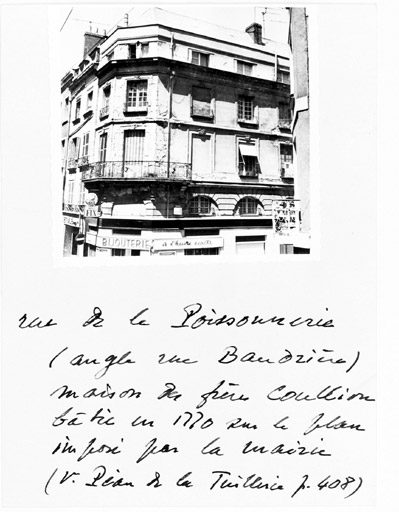 FIX
BIJOUTERIE
rue de la Poissonnerie
(angle rue Bandrière)
maison des frères Coullion
bâtie en 1770 sur le plan
imposé par la mairie
(V. Péan de la Tuillerie p. 408)